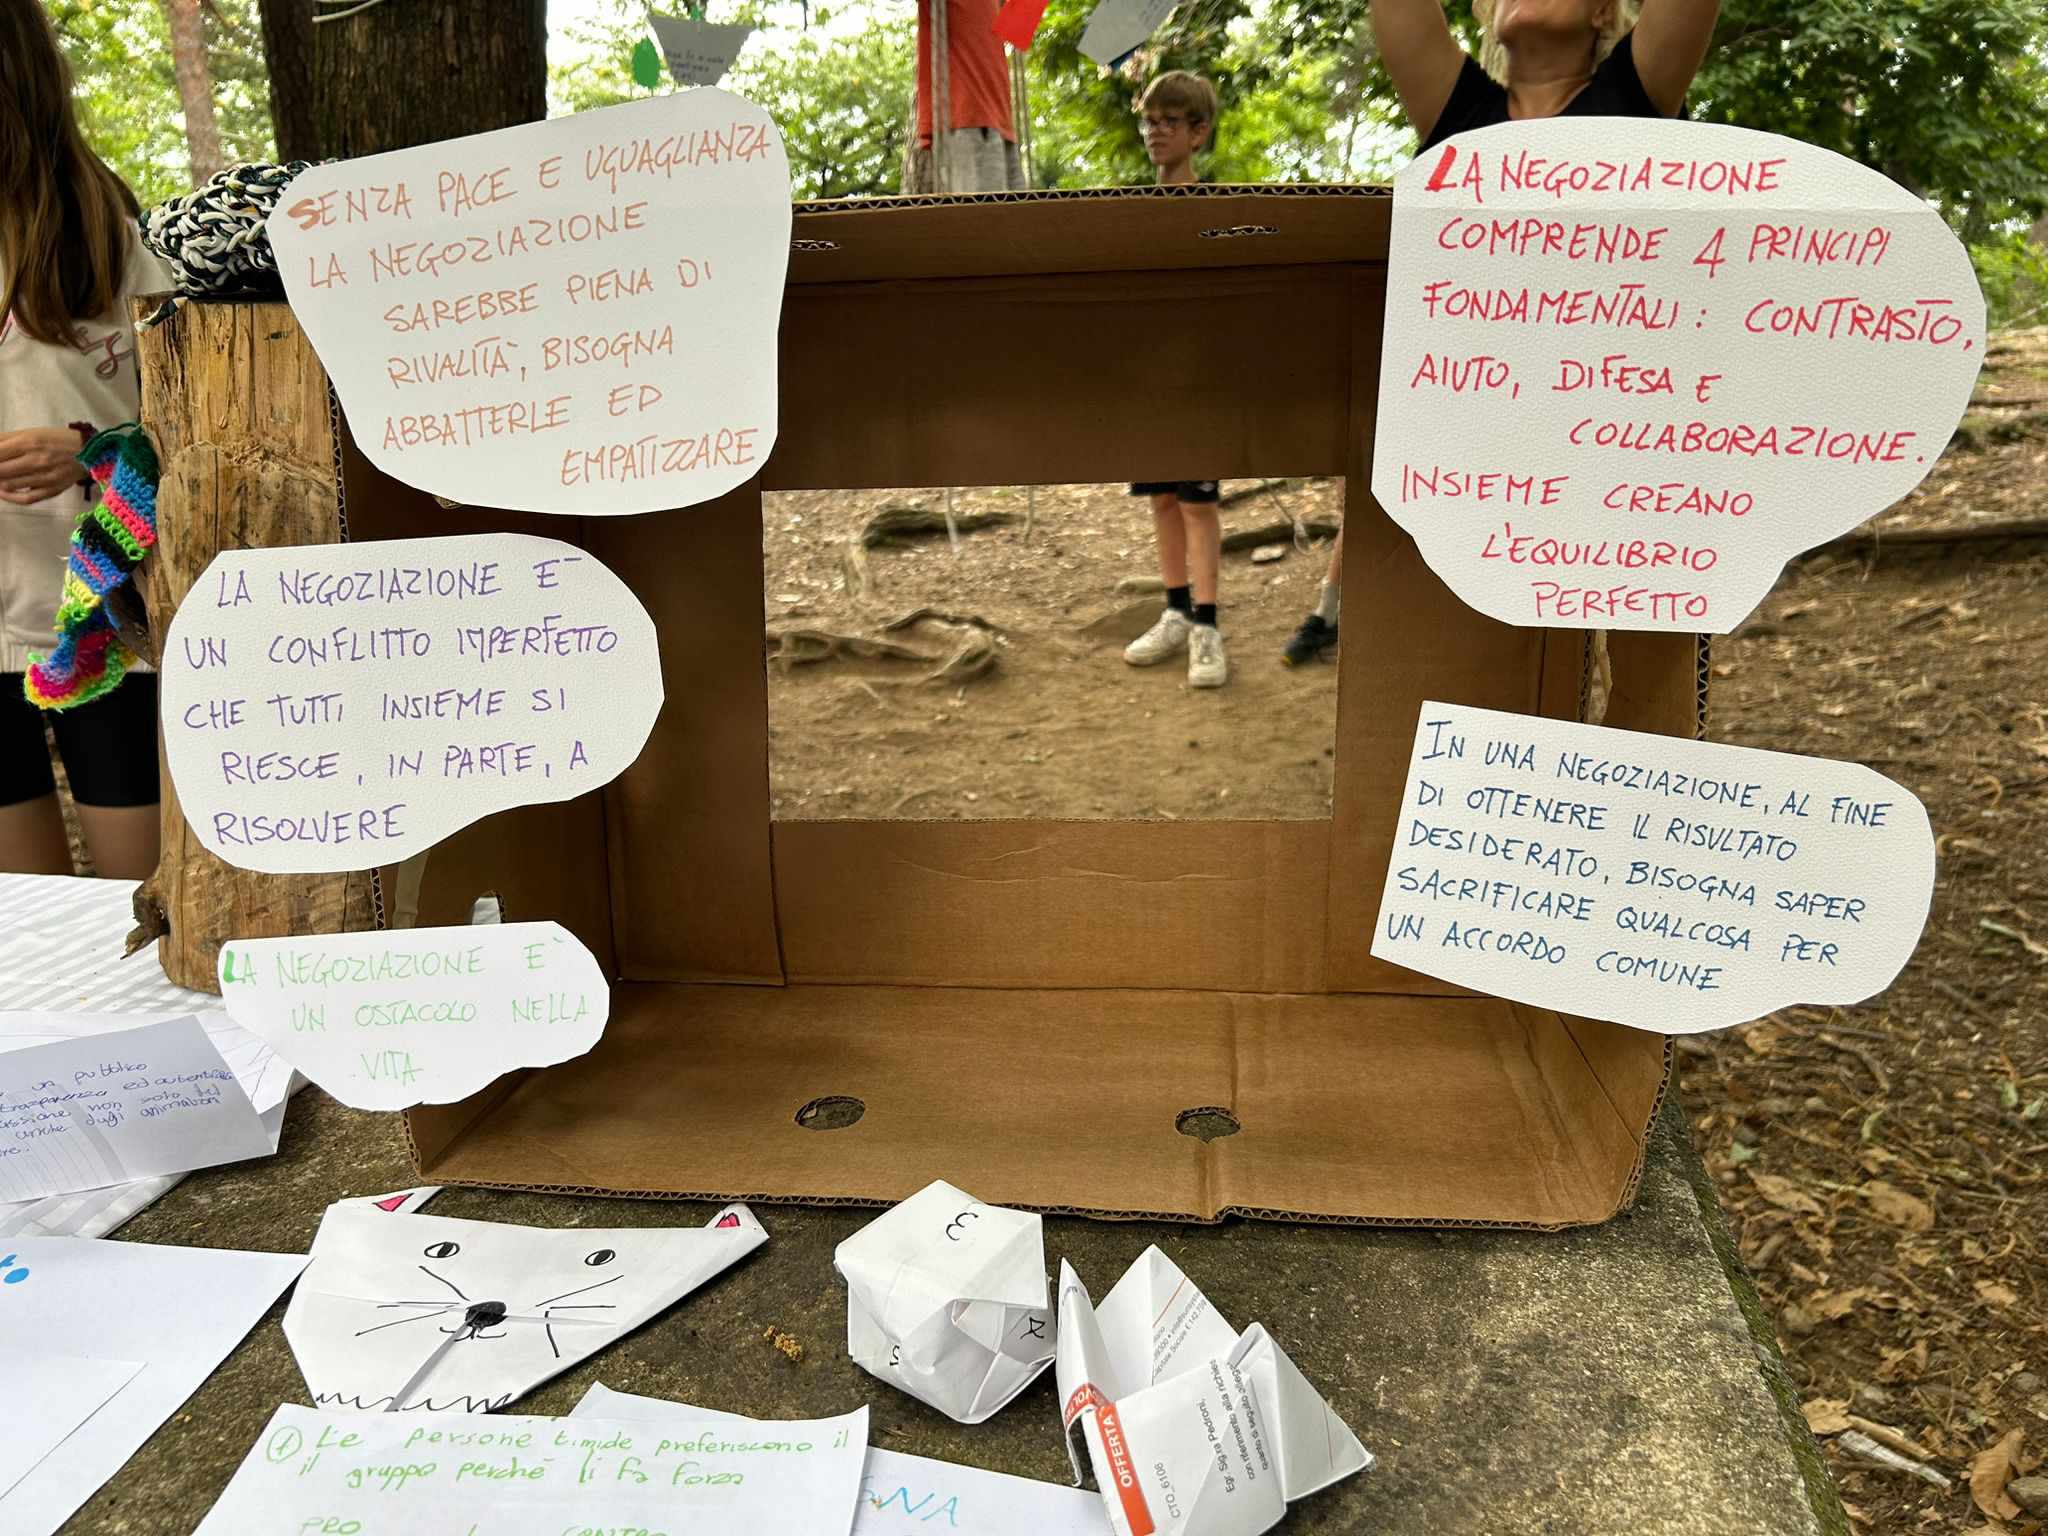 SENZA PACE E UGUAGLIANZA
LA NEGOZIAZIONE
SAREBBE PIENA DI
RIVALITÀ, BISOGNA
ABBATTERLE ED
EMPATIZZARE
LA NEGOZIAZIONE
COMPRENDE 4 PRINCIPI
FONDAMENTALI: CONTRASTO,
AIUTO, DIFESA E
COLLABORAZIONE.
INSIEME CREANO
L'EQUILIBRIO
PERFETTO
LA NEGOZIAZIONE E-
UN CONFLITTO IMPERFETTO
CHE TUTTI INSIEME SI
RIESCE, IN PARTE, A
RISOLVERE
IN UNA NEGOZIAZIONE, AL FINE
DI OTTENERE IL RISULTATO
DESIDERATO, BISOGNA SAPER
SACRIFICARE QUALCOSA PER
UN ACCORDO COMUNE
LA NEGOZIAZIONE E`
UN OSTACOLO NELLA
VITA
un pubblico
trasparenza ed
non solo
anche dagli animatori
3
OFFERTA
CTO_6106
Eg. Sig.ra Pedroni,
con riferimento alla
quanto di seguito
1 Le persone timide preferiscono il
il gruppo perché li fa forza
PRO CONTRO
GNA